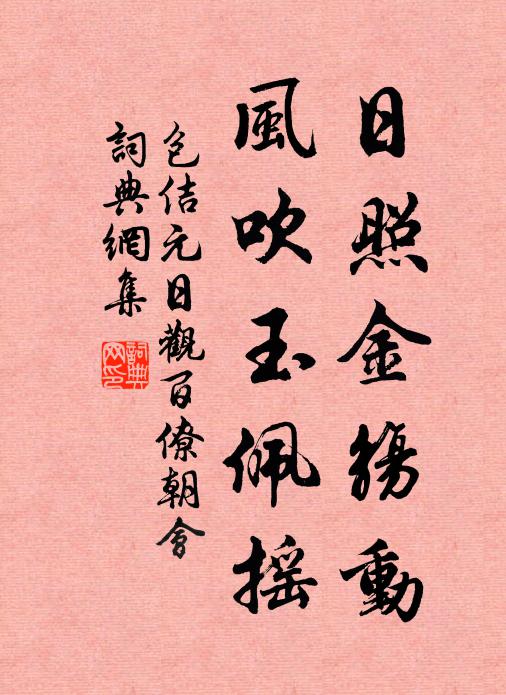 日照金觴動
風吹玉佩搖
包佶元日觀百僚朝會
詞典網集
詞典网印